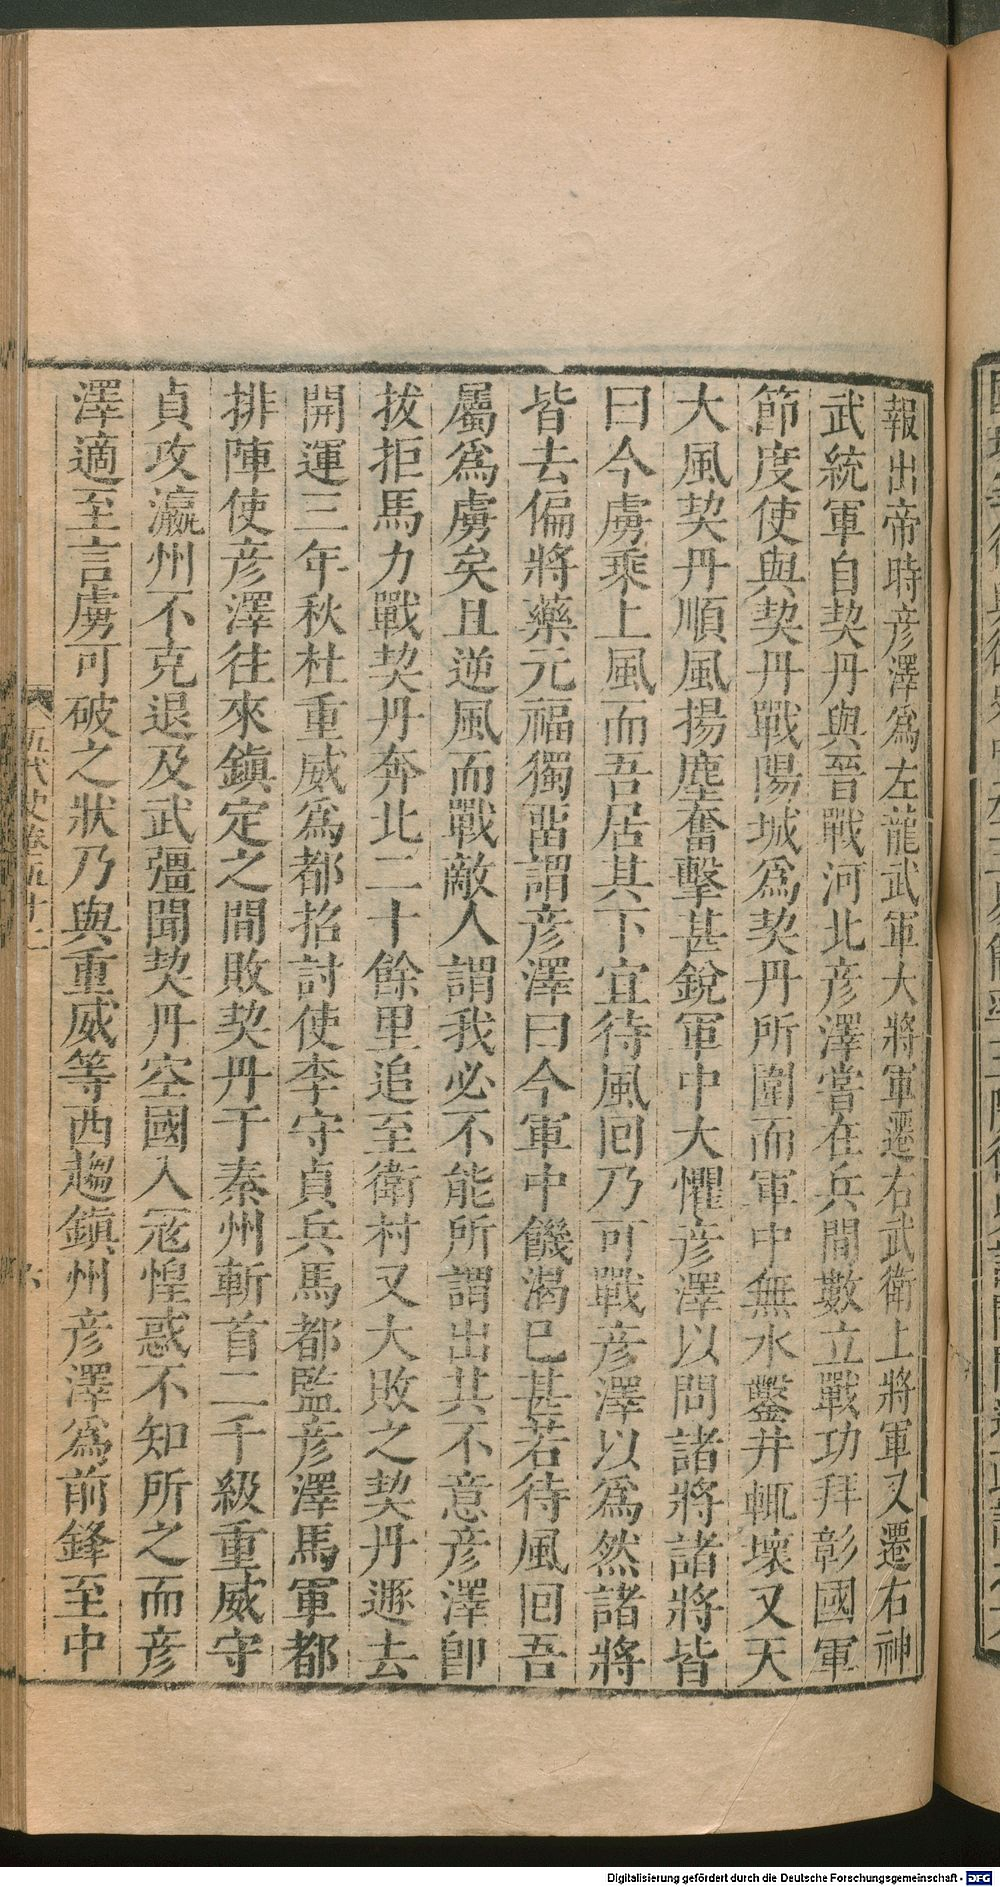 報出帝時彦澤爲左龍武軍大將軍遷右武衛上將軍又遷右神
武統軍自契丹與晉戰河北彦澤嘗在兵間數立戰功拜彰國軍
節度使與契丹戰陽城爲契丹所圍而軍中無水鑿井輒壞又天
大風契丹順風揚塵奮擊甚銳軍中大懼彦澤以問諸將諸將皆
曰今虜乘上風而吾居其下宜待風回乃可戰彦澤以爲然諸將
皆去偏將藥元福獨畱謂彦澤曰今軍中饑渴已甚若待風回吾
屬爲虜矣且逆風而戰敵人謂我必不能所謂出其不意彦澤卽
拔拒馬力戰契丹奔北二十餘里追至衛村又大敗之契丹遯去
開運三年秋杜重威爲都招討使李守貞兵馬都監彦澤馬軍都
排陣使彦澤往來鎮定之間敗契丹于泰州斬首二千級重威守
貞攻瀛州不克退及武彊聞契丹空國入寇惶惑不知所之而彦
澤適至言虜可破之狀乃與重威等西趨鎮州彦澤爲前鋒至中
五代史卷五十二
六
Digitalisierung gefördert durch die Deutsche Forschungsgemeinschaft - DFG